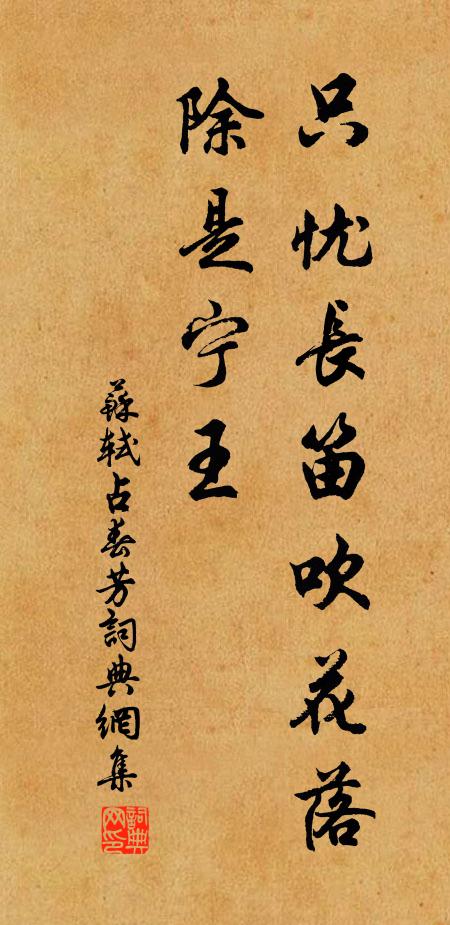 只忧長笛吹花落
除是宁王
蘇軾占春芳詞典網集
詞典网印